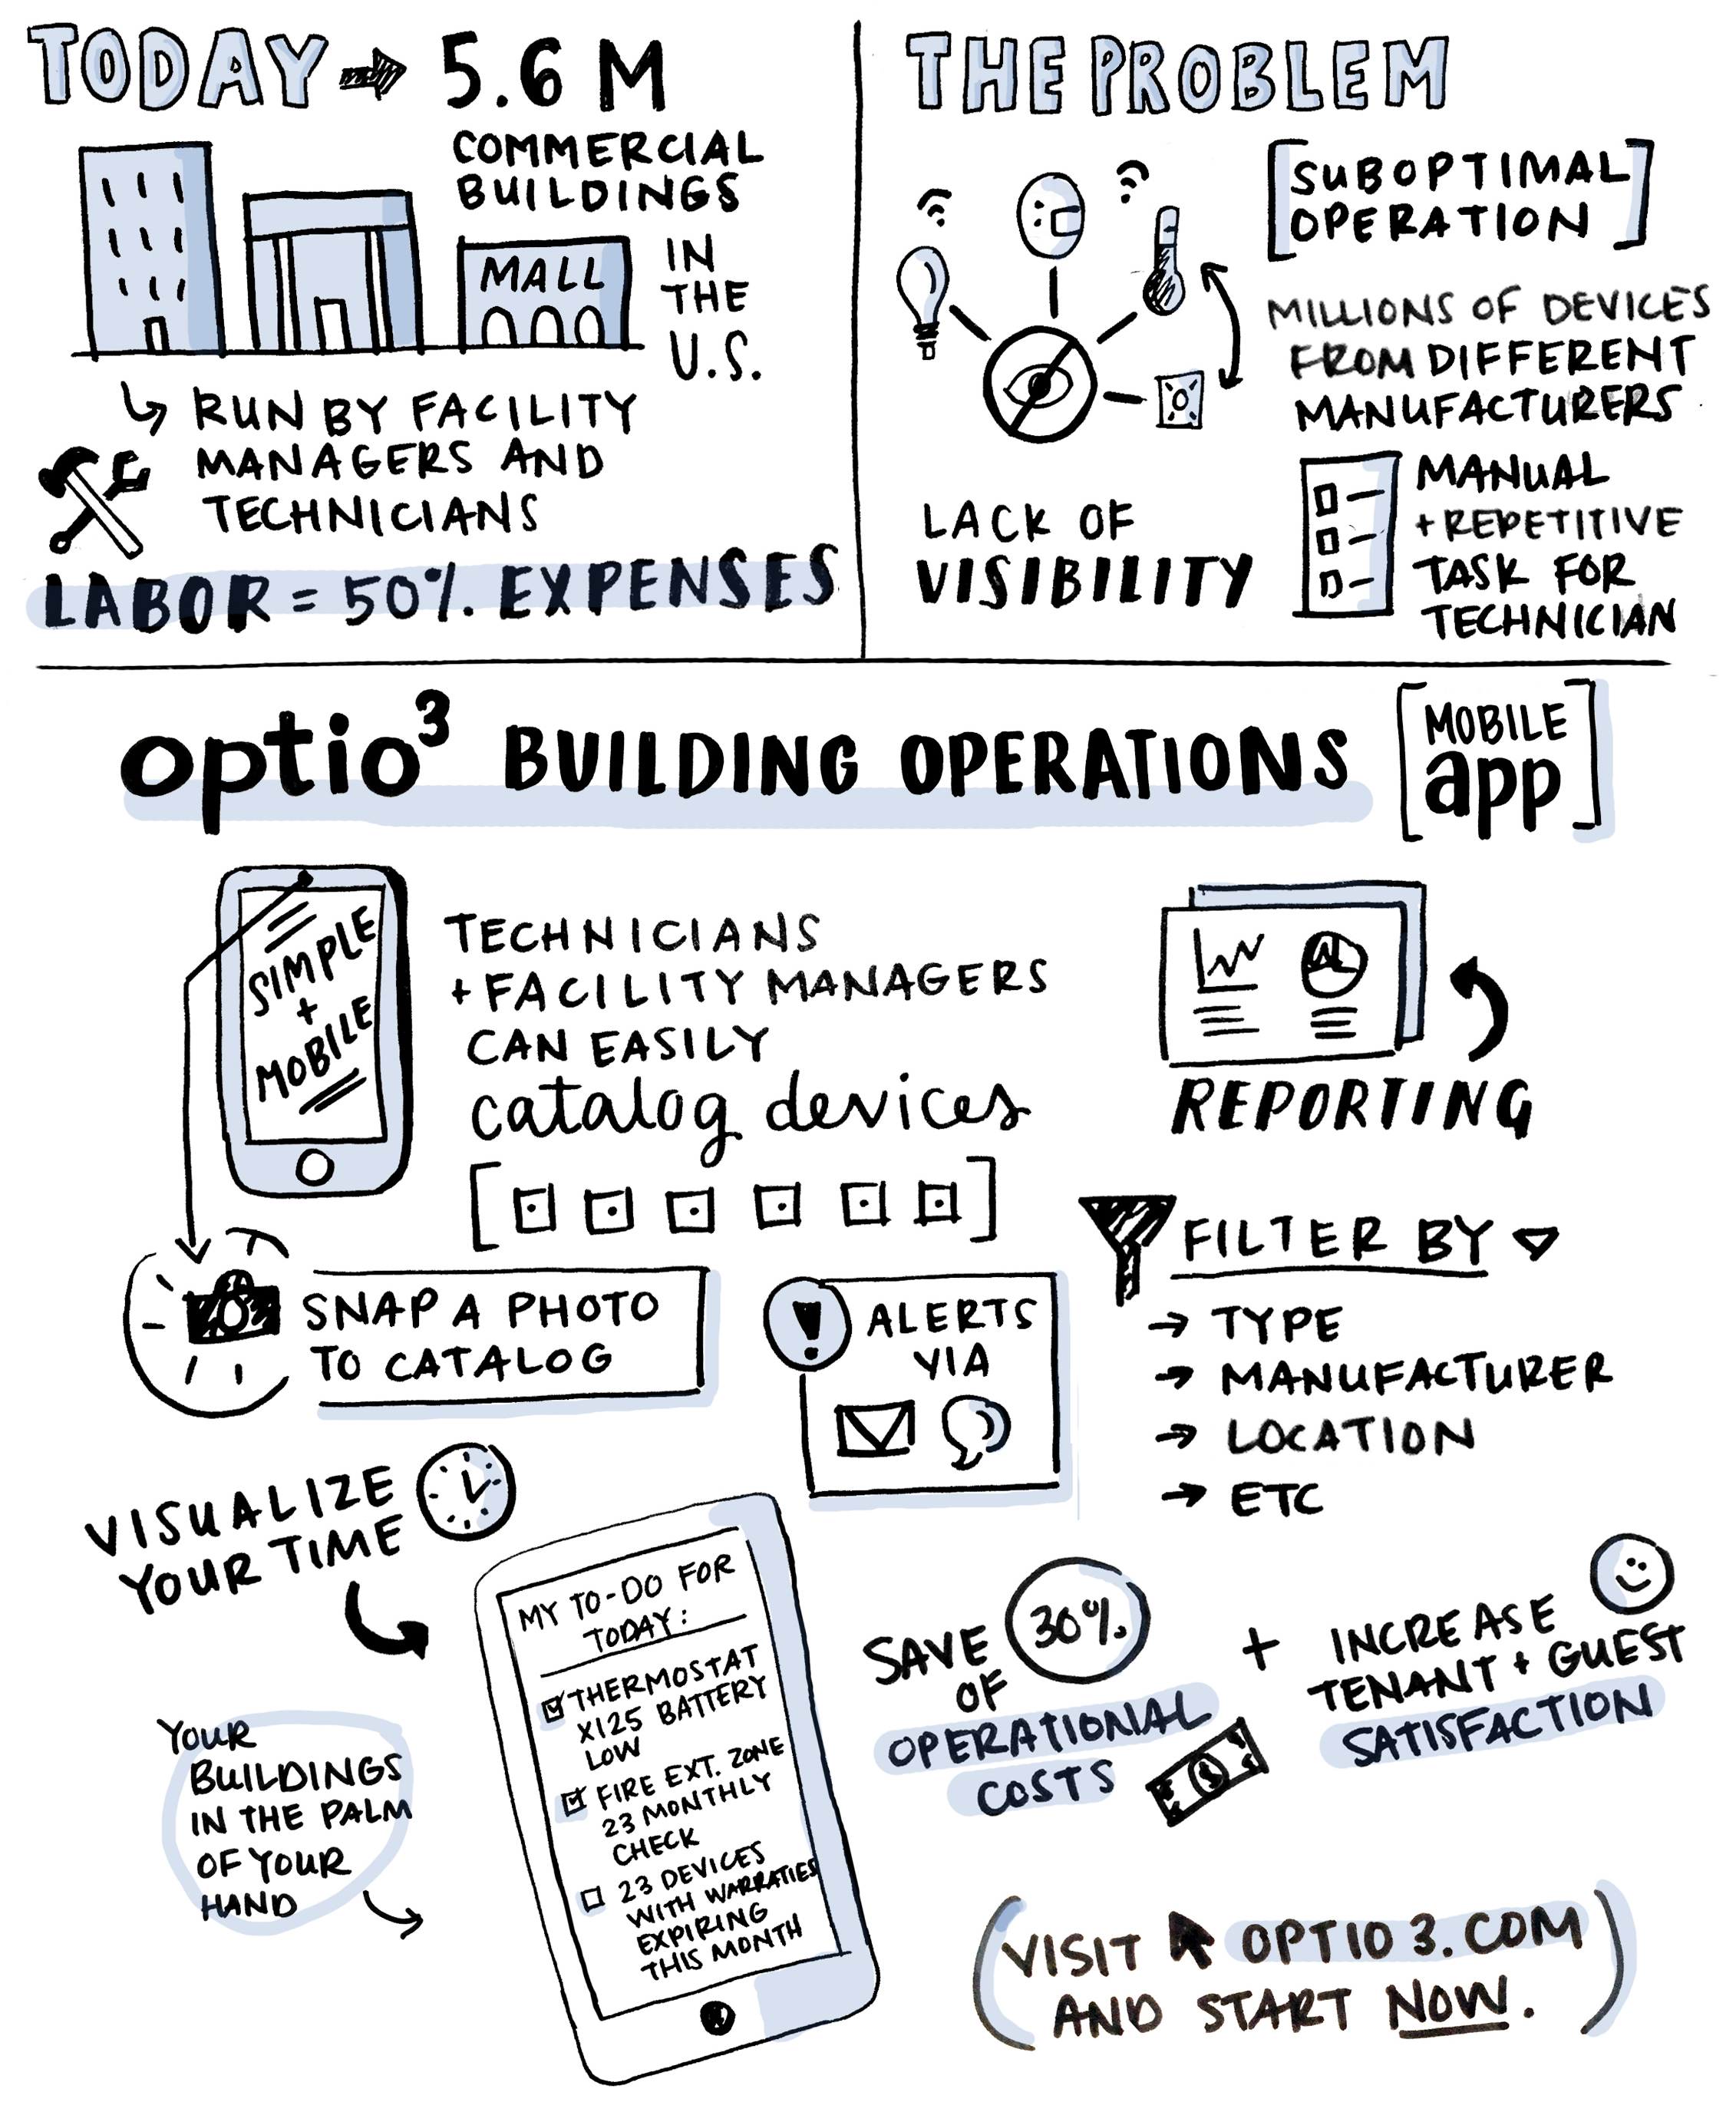 TODAY → 5.6 M
COMMERCIAL
BUILDINGS
IN
THE
U.S.
MALL
RUN BY FACILITY
MANAGERS AND
TECHNICIANS
LABOR = 50% EXPENSES
THE PROBLEM
[SUBOPTIMAL
OPERATION]
MILLIONS OF DEVICES
FROM DIFFERENT
MANUFACTURERS
LACK OF
VISIBILITY
MANUAL
+ REPETITIVE
TASK FOR
TECHNICIAN
optio³ BUILDING OPERATIONS
[MOBILE
app]
SIMPLE
+
MOBILE
TECHNICIANS
+ FACILITY MANAGERS
CAN EASILY
catalog devices
REPORTING
SNAP A PHOTO
TO CATALOG
ALERTS
VIA
FILTER BY
→ TYPE
→ MANUFACTURER
→ LOCATION
→ ETC
VISUALIZE
YOUR TIME
MY TO-DO FOR
TODAY:
THERMOSTAT
X125 BATTERY
LOW
FIRE EXT. ZONE
23 MONTHLY
CHECK
23 DEVICES
WITH WARRATIES
EXPIRING
THIS MONTH
YOUR
BUILDINGS
IN THE PALM
OF YOUR
HAND
SAVE 30%
OF
OPERATIONAL
COSTS
+
INCREASE
TENANT + GUEST
SATISFACTION
(VISIT OPTIO3.COM
AND START NOW.)